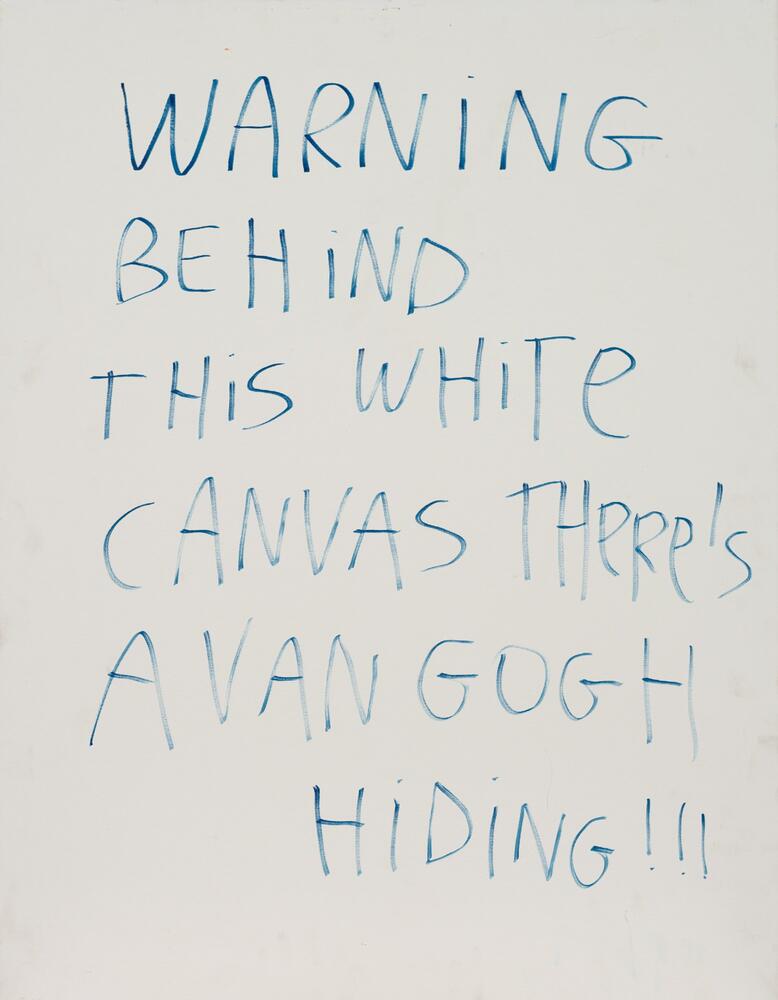 WARNiNG
BEHiND
THiS WHiTe
CANVAS THeRe's
A VAN GOGH
HiDiNG!!!